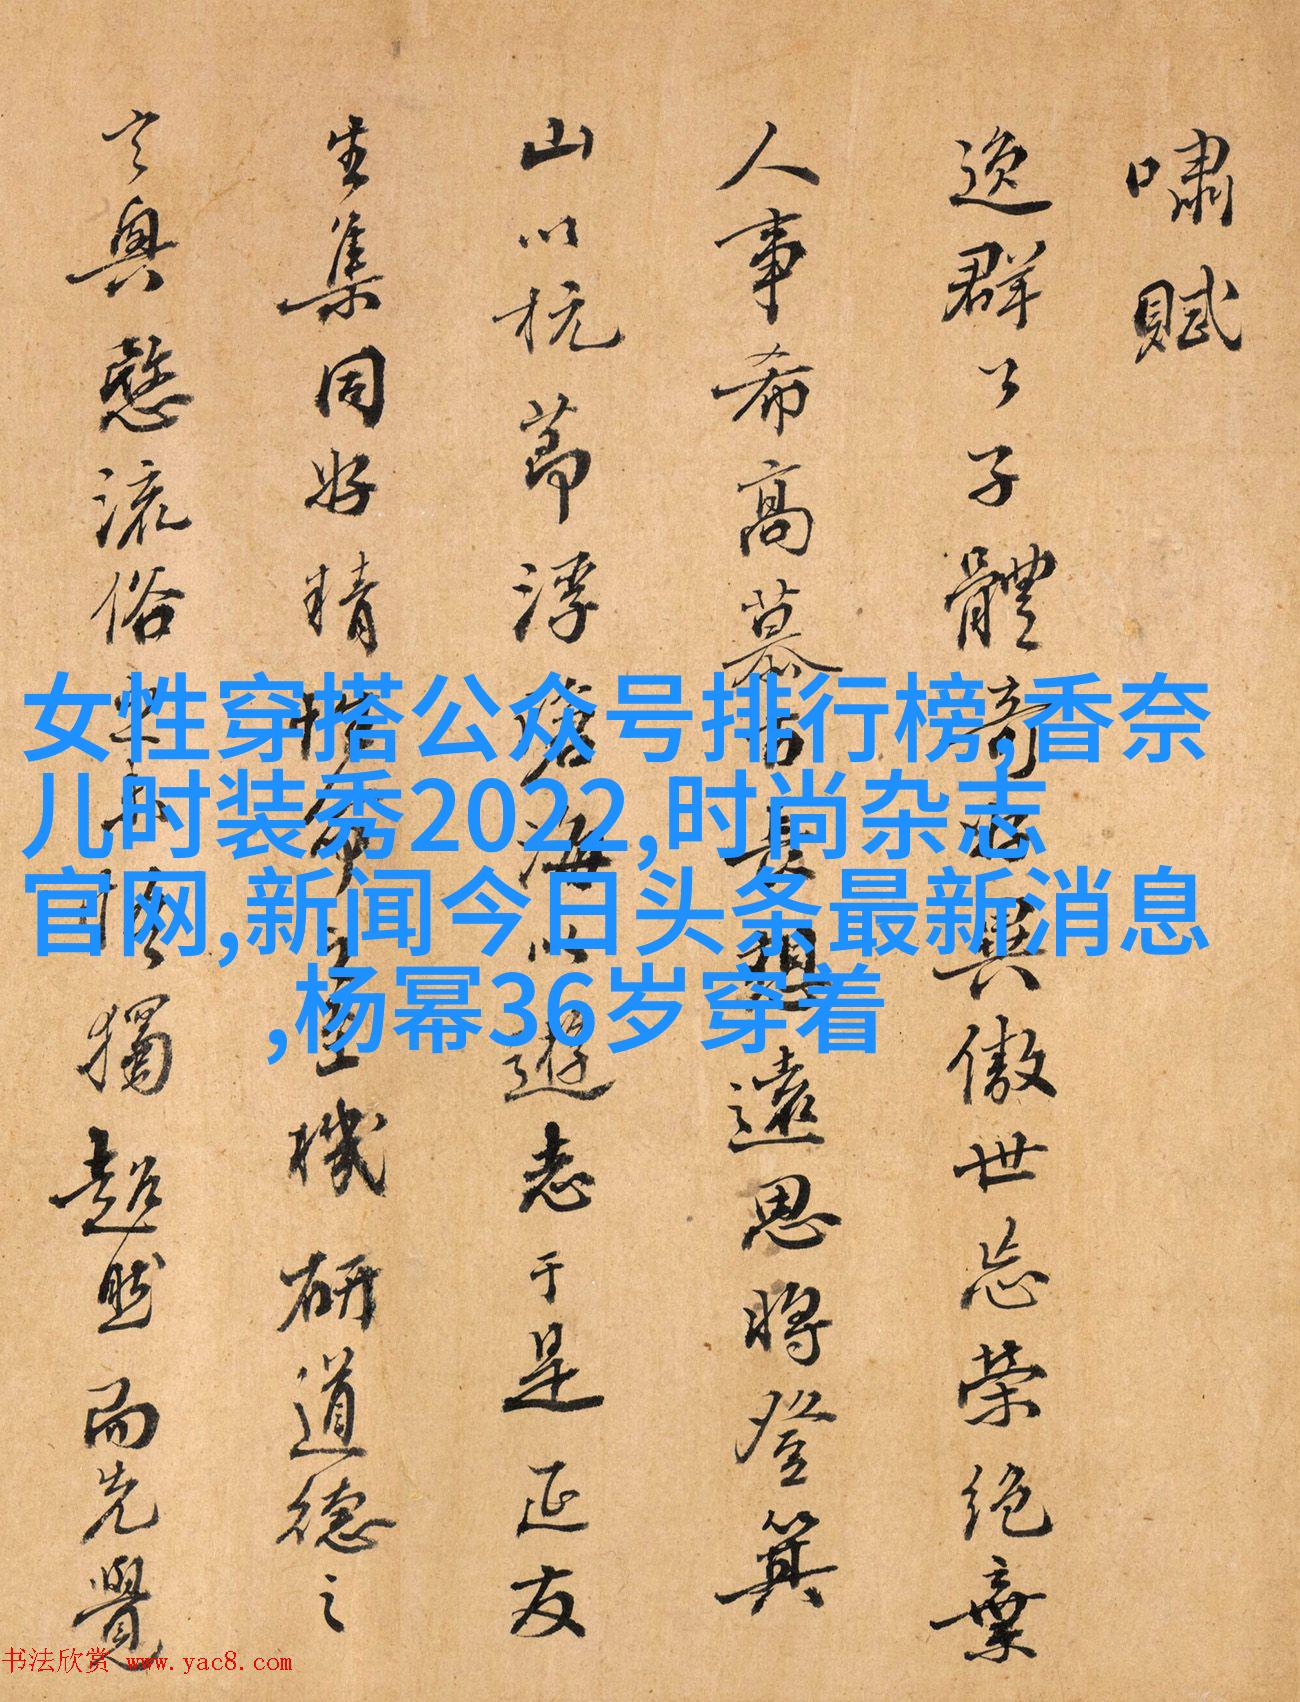 嘯賦
逸群公子體奇好異傲世忘榮絕棄
人事希高慕古長想遠思將登箕
山以抗節浮滄海以遊志于是延友
生集同好精性命之至機研道德之
玄奧愍流俗未悟獨超然而先覺
女性穿搭公众号排行榜,香奈
儿时装秀2022,时尚杂志
官网,新闻今日头条最新消息
,杨幂36岁穿着
书法欣赏 www.yac8.com